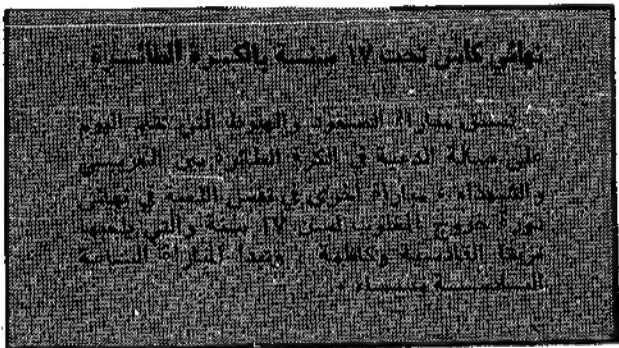 نهائي كأس تحت ١٧ سنة بالكرة الطائرة
تسبق مباراة الصعود والهبوط التي تقام اليوم
على صالة الدعية في الكرة الطائرة بين
والشهداء ، مباراة أخرى في نفس اللعبة في نهائي
دورة خروج المغلوب لسن ١٧ سنة والتي يلعبها
فريقا القادسية وكاظمة . وتبدأ المباراة الساعة
السادسة مساء .